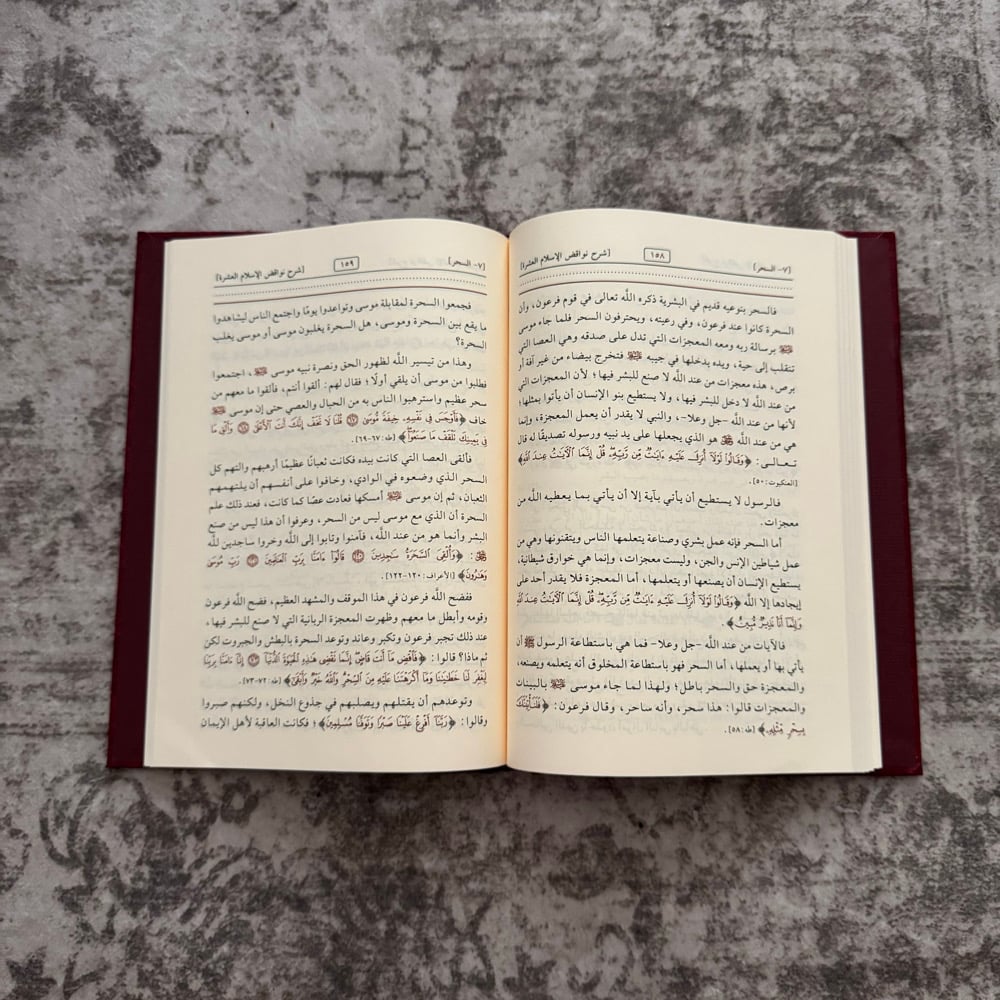 [٧- السحر] ١٥٨ [شرح نواقض الإسلام العشرة]
فالسحر بنوعيه قديم في البشرية ذكره اللَّه تعالى في قوم فرعون، وأن
السحرة كانوا عند فرعون، وفي رعيته، ويحترفون السحر فلما جاء موسى
ﷺ برسالة ربه ومعه المعجزات التي تدل على صدقه وهي العصا التي
تنقلب إلى حية، ويده يدخلها في جيبه ﷺ فتخرج بيضاء من غير آفة أو
برص، هذه معجزات من عند اللَّه لا صنع للبشر فيها؛ لأن المعجزات التي
من عند اللَّه لا دخل للبشر فيها، ولا يستطيع بنو الإنسان أن يأتوا بمثلها؛
لأنها من عند اللَّه -جل وعلا-، والنبي لا يقدر أن يعمل المعجزة، وإنما
هي من عند اللَّه ﷻ هو الذي يجعلها على يد نبيه ورسوله تصديقًا له قال
تعالى: ﴿وَقَالُوا۟ لَوْلَآ أُنزِلَ عَلَيْهِ ءَايَٰتٌ مِّن رَّبِّهِۦ قُلْ إِنَّمَا ٱلْءَايَٰتُ عِندَ ٱللَّهِ﴾
[العنكبوت: ٥٠].
فالرسول لا يستطيع أن يأتي بآية إلا أن يأتي بما يعطيه اللَّه من
معجزات.
أما السحر فإنه عمل بشري وصناعة يتعلمها الناس ويتقنونها وهي من
عمل شياطين الإنس والجن، وليست معجزات، وإنما هي خوارق شيطانية،
يستطيع الإنسان أن يصنعها أو يتعلمها، أما المعجزة فلا يقدر أحد على
إيجادها إلا اللَّه ﴿وَقَالُوا۟ لَوْلَآ أُنزِلَ عَلَيْهِ ءَايَٰتٌ مِّن رَّبِّهِۦ قُلْ إِنَّمَا ٱلْءَايَٰتُ عِندَ ٱللَّهِ
وَإِنَّمَآ أَنَا۠ نَذِيرٌ مُّبِينٌ﴾.
فالآيات من عند اللَّه -جل وعلا- فما هي باستطاعة الرسول ﷺ أن
يأتي بها أو يعملها، أما السحر فهو باستطاعة المخلوق أنه يتعلمه ويصنعه،
والمعجزة حق والسحر باطل؛ ولهذا لما جاء موسى ﷺ بالبينات
والمعجزات قالوا: هذا سحر، وأنه ساحر، وقال فرعون: ﴿فَلَنَأْتِيَنَّكَ
بِسِحْرٍ مِّثْلِهِۦ﴾ [طه: ٥٨].
[٧- السحر] ١٥٩ [شرح نواقض الإسلام العشرة]
فجمعوا السحرة لمقابلة موسى وتواعدوا يومًا واجتمع الناس ليشاهدوا
ما يقع بين السحرة وموسى، هل السحرة يغلبون موسى أو موسى يغلب
السحرة؟
وهذا من تيسير اللَّه لظهور الحق ونصرة نبيه موسى ﷺ، اجتمعوا
فطلبوا من موسى أن يلقي أولًا؛ فقال لهم: ألقوا أنتم، فألقوا ما معهم من
سحر عظيم واسترهبوا الناس به من الحبال والعصي حتى إن موسى ﷺ
خاف ﴿فَأَوْجَسَ فِى نَفْسِهِۦ خِيفَةً مُّوسَىٰ ۝٦٧ قُلْنَا لَا تَخَفْ إِنَّكَ أَنتَ ٱلْأَعْلَىٰ ۝٦٨ وَأَلْقِ مَا
فِى يَمِينِكَ تَلْقَفْ مَا صَنَعُوٓا۟﴾ [طه: ٦٧-٦٩].
فألقى العصا التي كانت بيده فكانت ثعبانًا عظيمًا أرهبهم والتهم كل
السحر الذي وضعوه في الوادي، وخافوا على أنفسهم أن يلتهمهم
الثعبان، ثم إن موسى ﷺ أمسكها فعادت عصًا كما كانت، فعند ذلك علم
السحرة أن الذي مع موسى ليس من السحر، وعرفوا أن هذا ليس من صنع
البشر وأنما هو من عند اللَّه، فآمنوا وتابوا إلى اللَّه وخروا ساجدين للَّه
ﷻ: ﴿وَأُلْقِىَ ٱلسَّحَرَةُ سَٰجِدِينَ ۝١٢٠ قَالُوٓا۟ ءَامَنَّا بِرَبِّ ٱلْعَٰلَمِينَ ۝١٢١ رَبِّ مُوسَىٰ
وَهَٰرُونَ﴾ [الأعراف: ١٢٠-١٢٢].
ففضح اللَّه فرعون في هذا الموقف والمشهد العظيم، فضح اللَّه فرعون
وقومه وأبطل ما معهم وظهرت المعجزة الربانية التي لا صنع للبشر فيها،
عند ذلك تجبر فرعون وتكبر وعاند وتوعد السحرة بالبطش والجبروت لكن
ثم ماذا؟ قالوا: ﴿فَٱقْضِ مَآ أَنتَ قَاضٍ إِنَّمَا تَقْضِى هَٰذِهِ ٱلْحَيَوٰةَ ٱلدُّنْيَآ ۝٧٢ إِنَّآ ءَامَنَّا بِرَبِّنَا
لِيَغْفِرَ لَنَا خَطَٰيَٰنَا وَمَآ أَكْرَهْتَنَا عَلَيْهِ مِنَ ٱلسِّحْرِ وَٱللَّهُ خَيْرٌ وَأَبْقَىٰٓ﴾ [طه: ٧٢-٧٣].
وتوعدهم أن يقتلهم ويصلبهم في جذوع النخل، ولكنهم صبروا
وقالوا: ﴿رَبَّنَآ أَفْرِغْ عَلَيْنَا صَبْرًا وَتَوَفَّنَا مُسْلِمِينَ﴾؛ فكانت العاقبة لأهل الإيمان